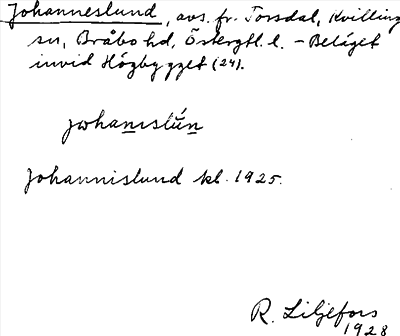 Johanneslund, avs. fr. Torsdal, Kvillinge
sn, Bråbo hd, Östergtl. l. - Beläget
invid Högbygget (24).
johanislún
Johannislund kl. 1925.
R. Liljefors
1928